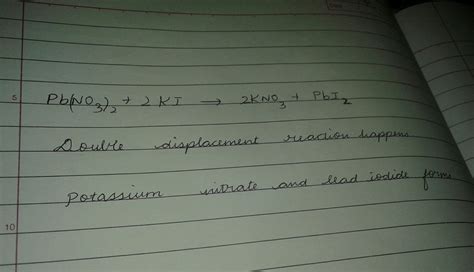 5
Pb(NO₃)₂ + 2KI → 2KNO₃ + PbI₂
Double displacement reaction happens
Potassium nitrate and lead iodide forms
10